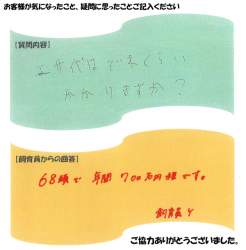 お客様が気になったこと、疑問に思ったことご記入ください
【質問内容】
エサ代はどれくらい
かかりますか？
【飼育員からの回答】
68頭で年間700万円程です。
飼育員Y
ご協力ありがとうございました。